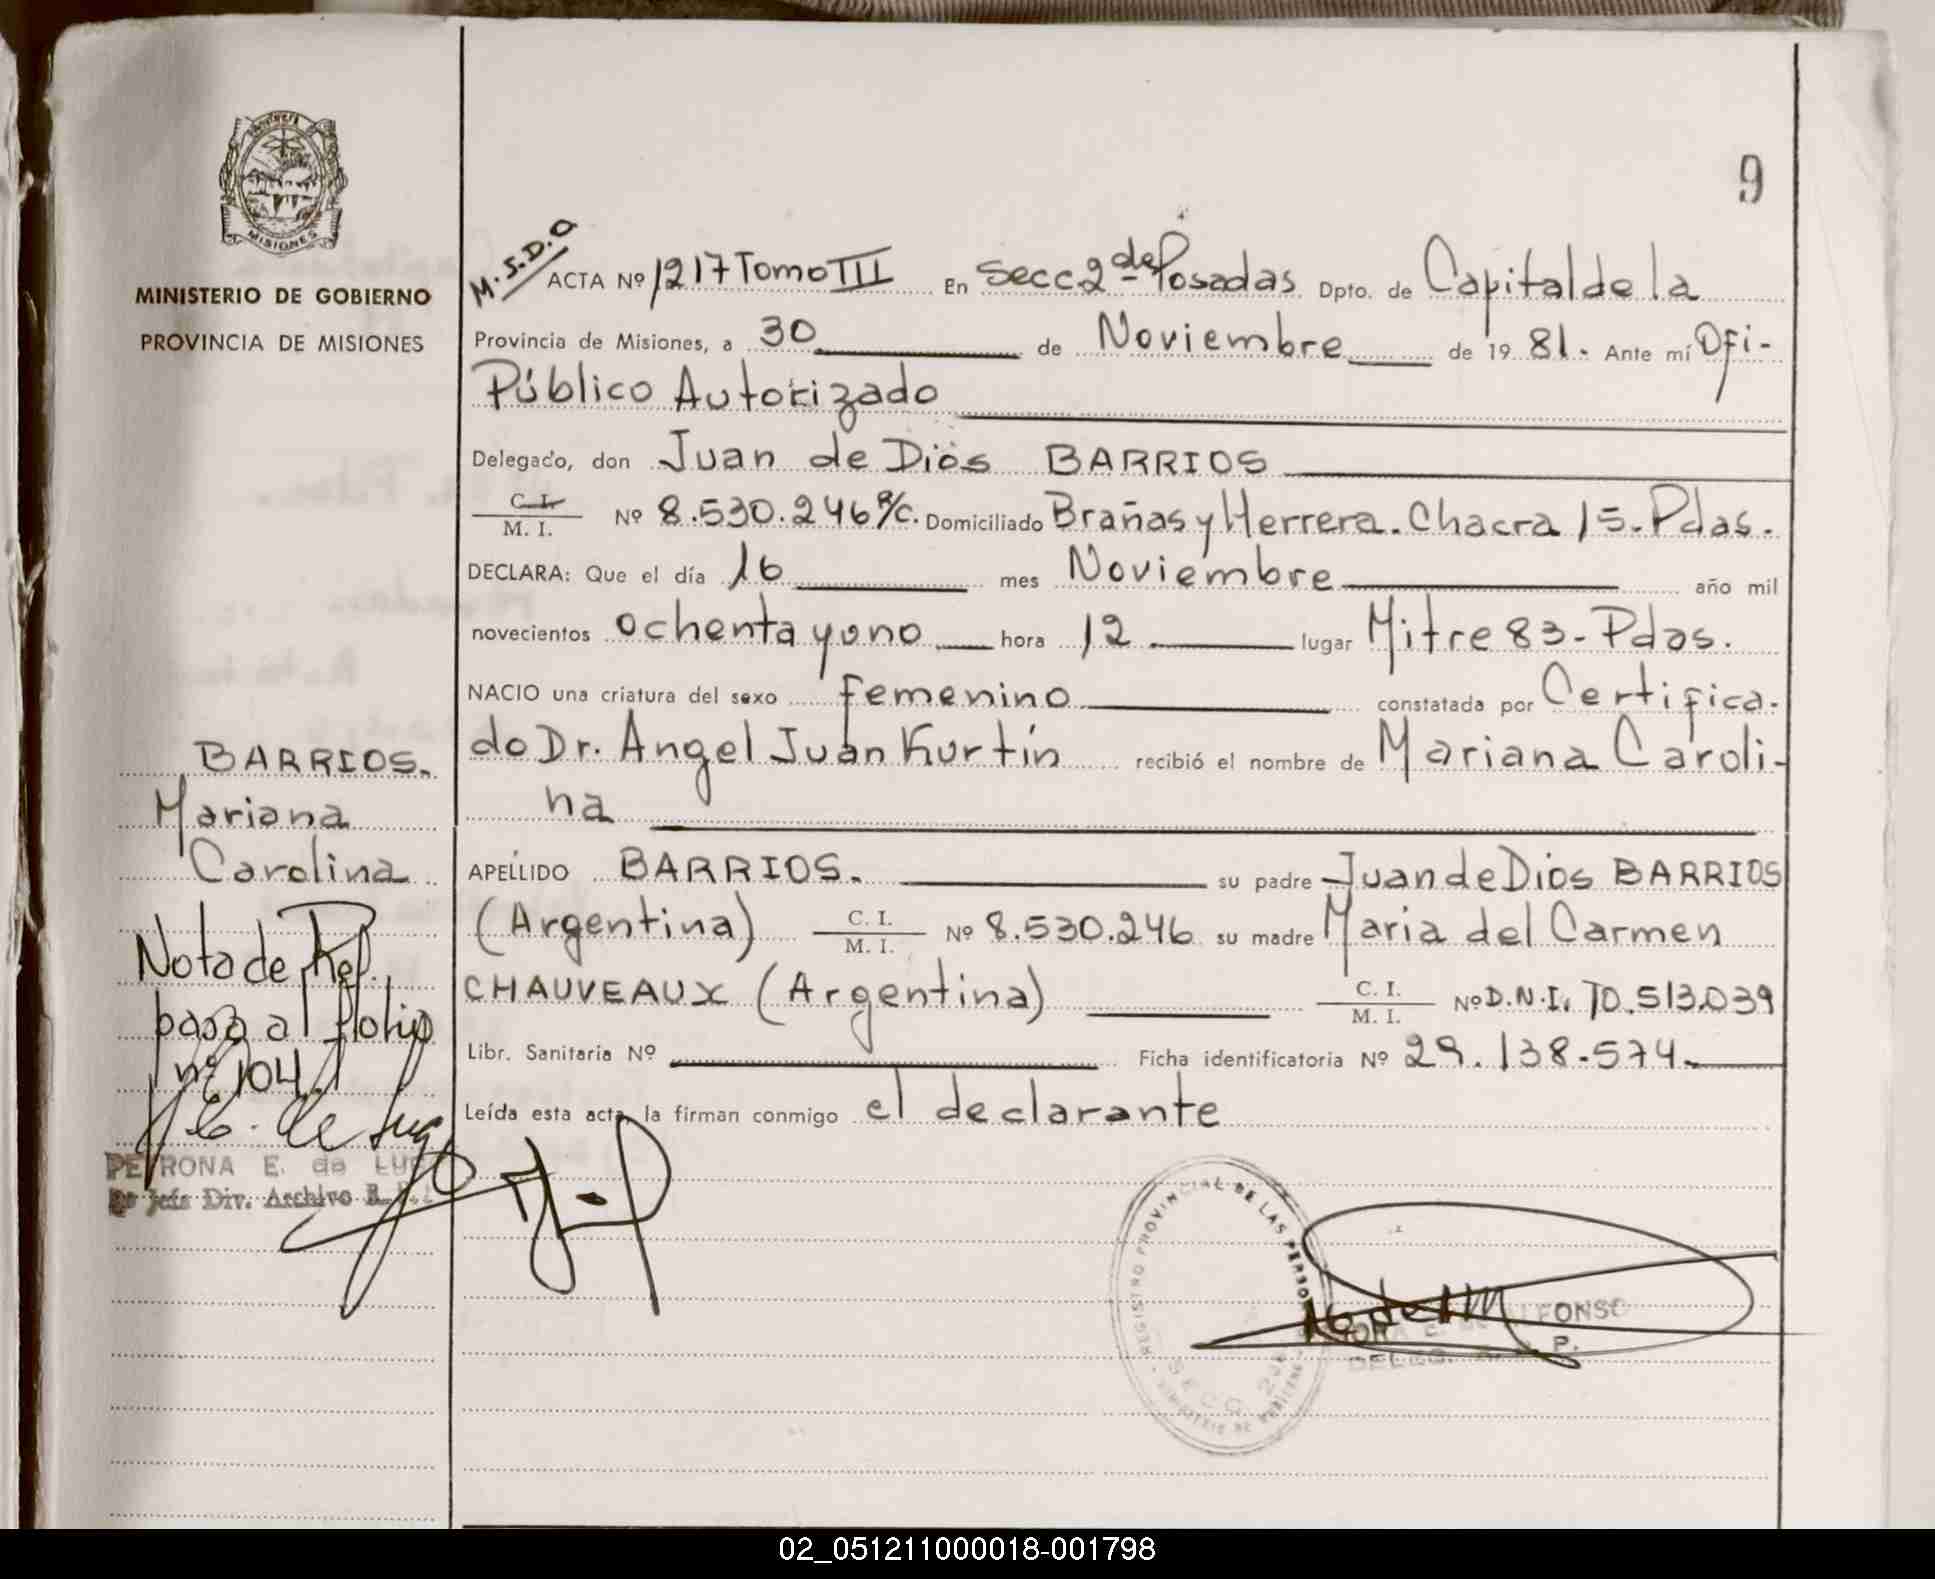 9
MISIONES
MINISTERIO DE GOBIERNO
PROVINCIA DE MISIONES
M.S.D.O
ACTA Nº 1217 Tomo III En Secc 2da Posadas Dpto. de Capital de la
Provincia de Misiones, a 30 de Noviembre de 1981. Ante mí Ofi-
Público Autorizado
Delegado, don Juan de Dios BARRIOS
C.I.
M. I. Nº 8.530.246 Domiciliado Brañas y Herrera. Chacra 15. Pdas.
DECLARA: Que el día 16 mes Noviembre año mil
novecientos ochenta y uno hora 12 lugar Mitre 83 - Pdas.
NACIO una criatura del sexo femenino constatada por Certifica-
do Dr. Angel Juan Kurtín recibió el nombre de Mariana Caroli-
na
BARRIOS.
Mariana
Carolina
APELLIDO BARRIOS. su padre Juan de Dios BARRIOS
(Argentina) C. I.
M. I. Nº 8.530.246 su madre Maria del Carmen
CHAUVEAUX (Argentina) C. I.
M. I. Nº D.N.I. 10.513.039
Libr. Sanitaria Nº Ficha identificatoria Nº 29.138.574.
Leída esta acta, la firman conmigo el declarante
Nota de Ref.
pasa al folio
nº 104.
PETRONA E. de LUGO
Jefa Div. Archivo R.
REGISTRO PROVINCIAL DE LAS PERSO
SECC. 2da
MINISTERIO DE GOBIERNO
ALFONSO
DELEG. R. P.
02_051211000018-001798